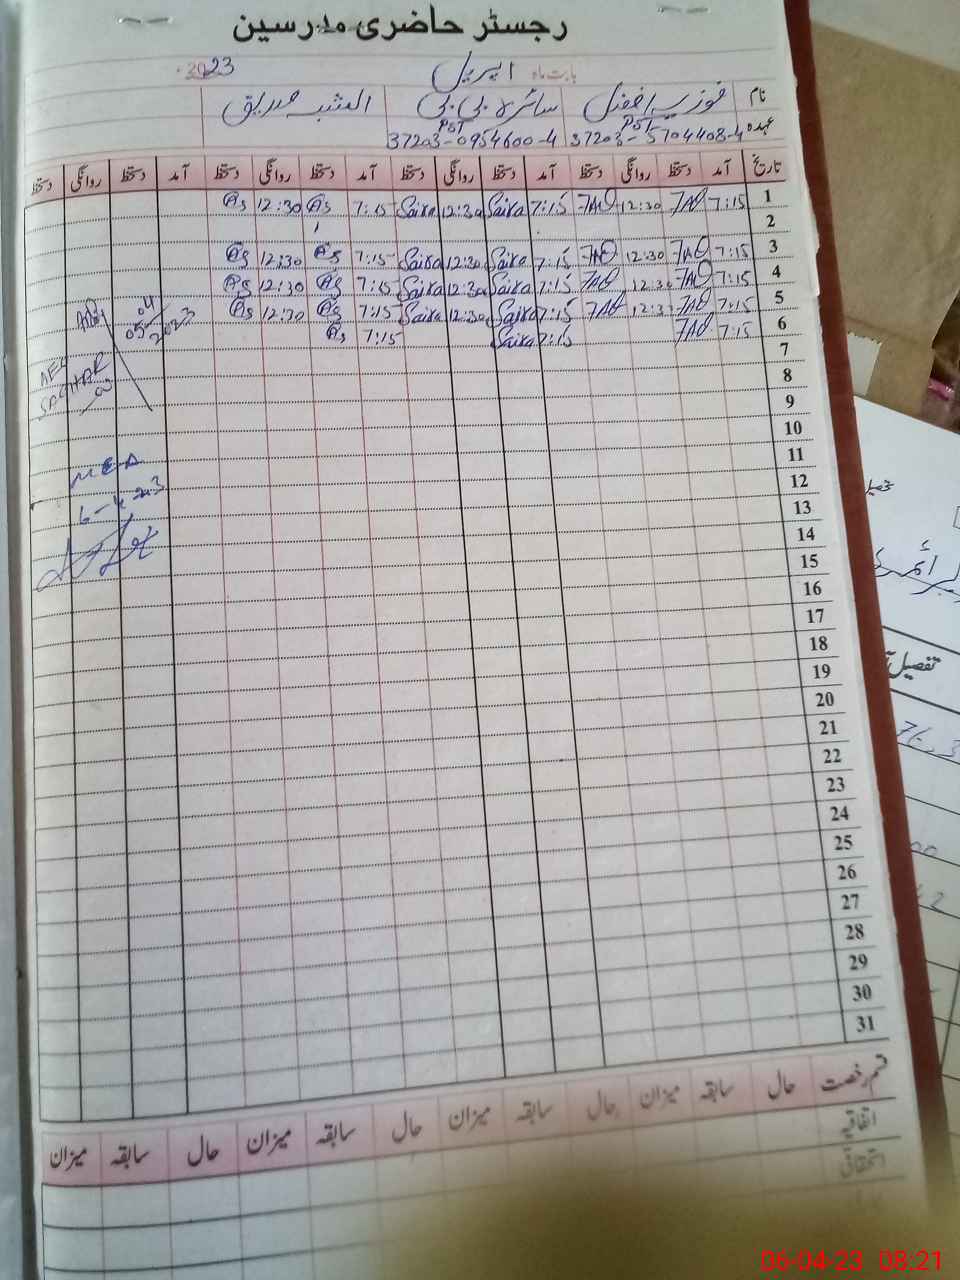 رجسٹر حاضری مدرسین
بابت ماہ اپریل 2023ء
نام فوزیہ افضل سائرہ بی بی
عہدہ PST PST
37203-5704408-4 37203-0954600-4
تاریخ آمد دستخط روانگی دستخط آمد دستخط روانگی دستخط آمد دستخط روانگی دستخط آمد دستخط روانگی دستخط
1 7:15 12:30 7:15 Saira 12:30 Saira 7:15 As 12:30 As
2
3 7:15 12:30 7:15 Saira 12:30 Saira 7:15 As 12:30 As
4 7:15 12:30 7:15 Saira 12:30 Saira 7:15 As 12:30 As
5 7:15 12:30 7:15 Saira 12:30 Saira 7:15 As 12:30 As
6 7:15 7:15 Saira 7:15 As
7
8
9
10
11
12
13
14
15
16
17
18
19
20
21
22
23
24
25
26
27
28
29
30
31
05 04 2023
MEA
6-4-2023
قسم رخصت حال سابقہ میزان حال سابقہ میزان حال سابقہ میزان حال سابقہ میزان
اتفاقیہ
استحقاقی
تفصیل
06-04-23 08:21